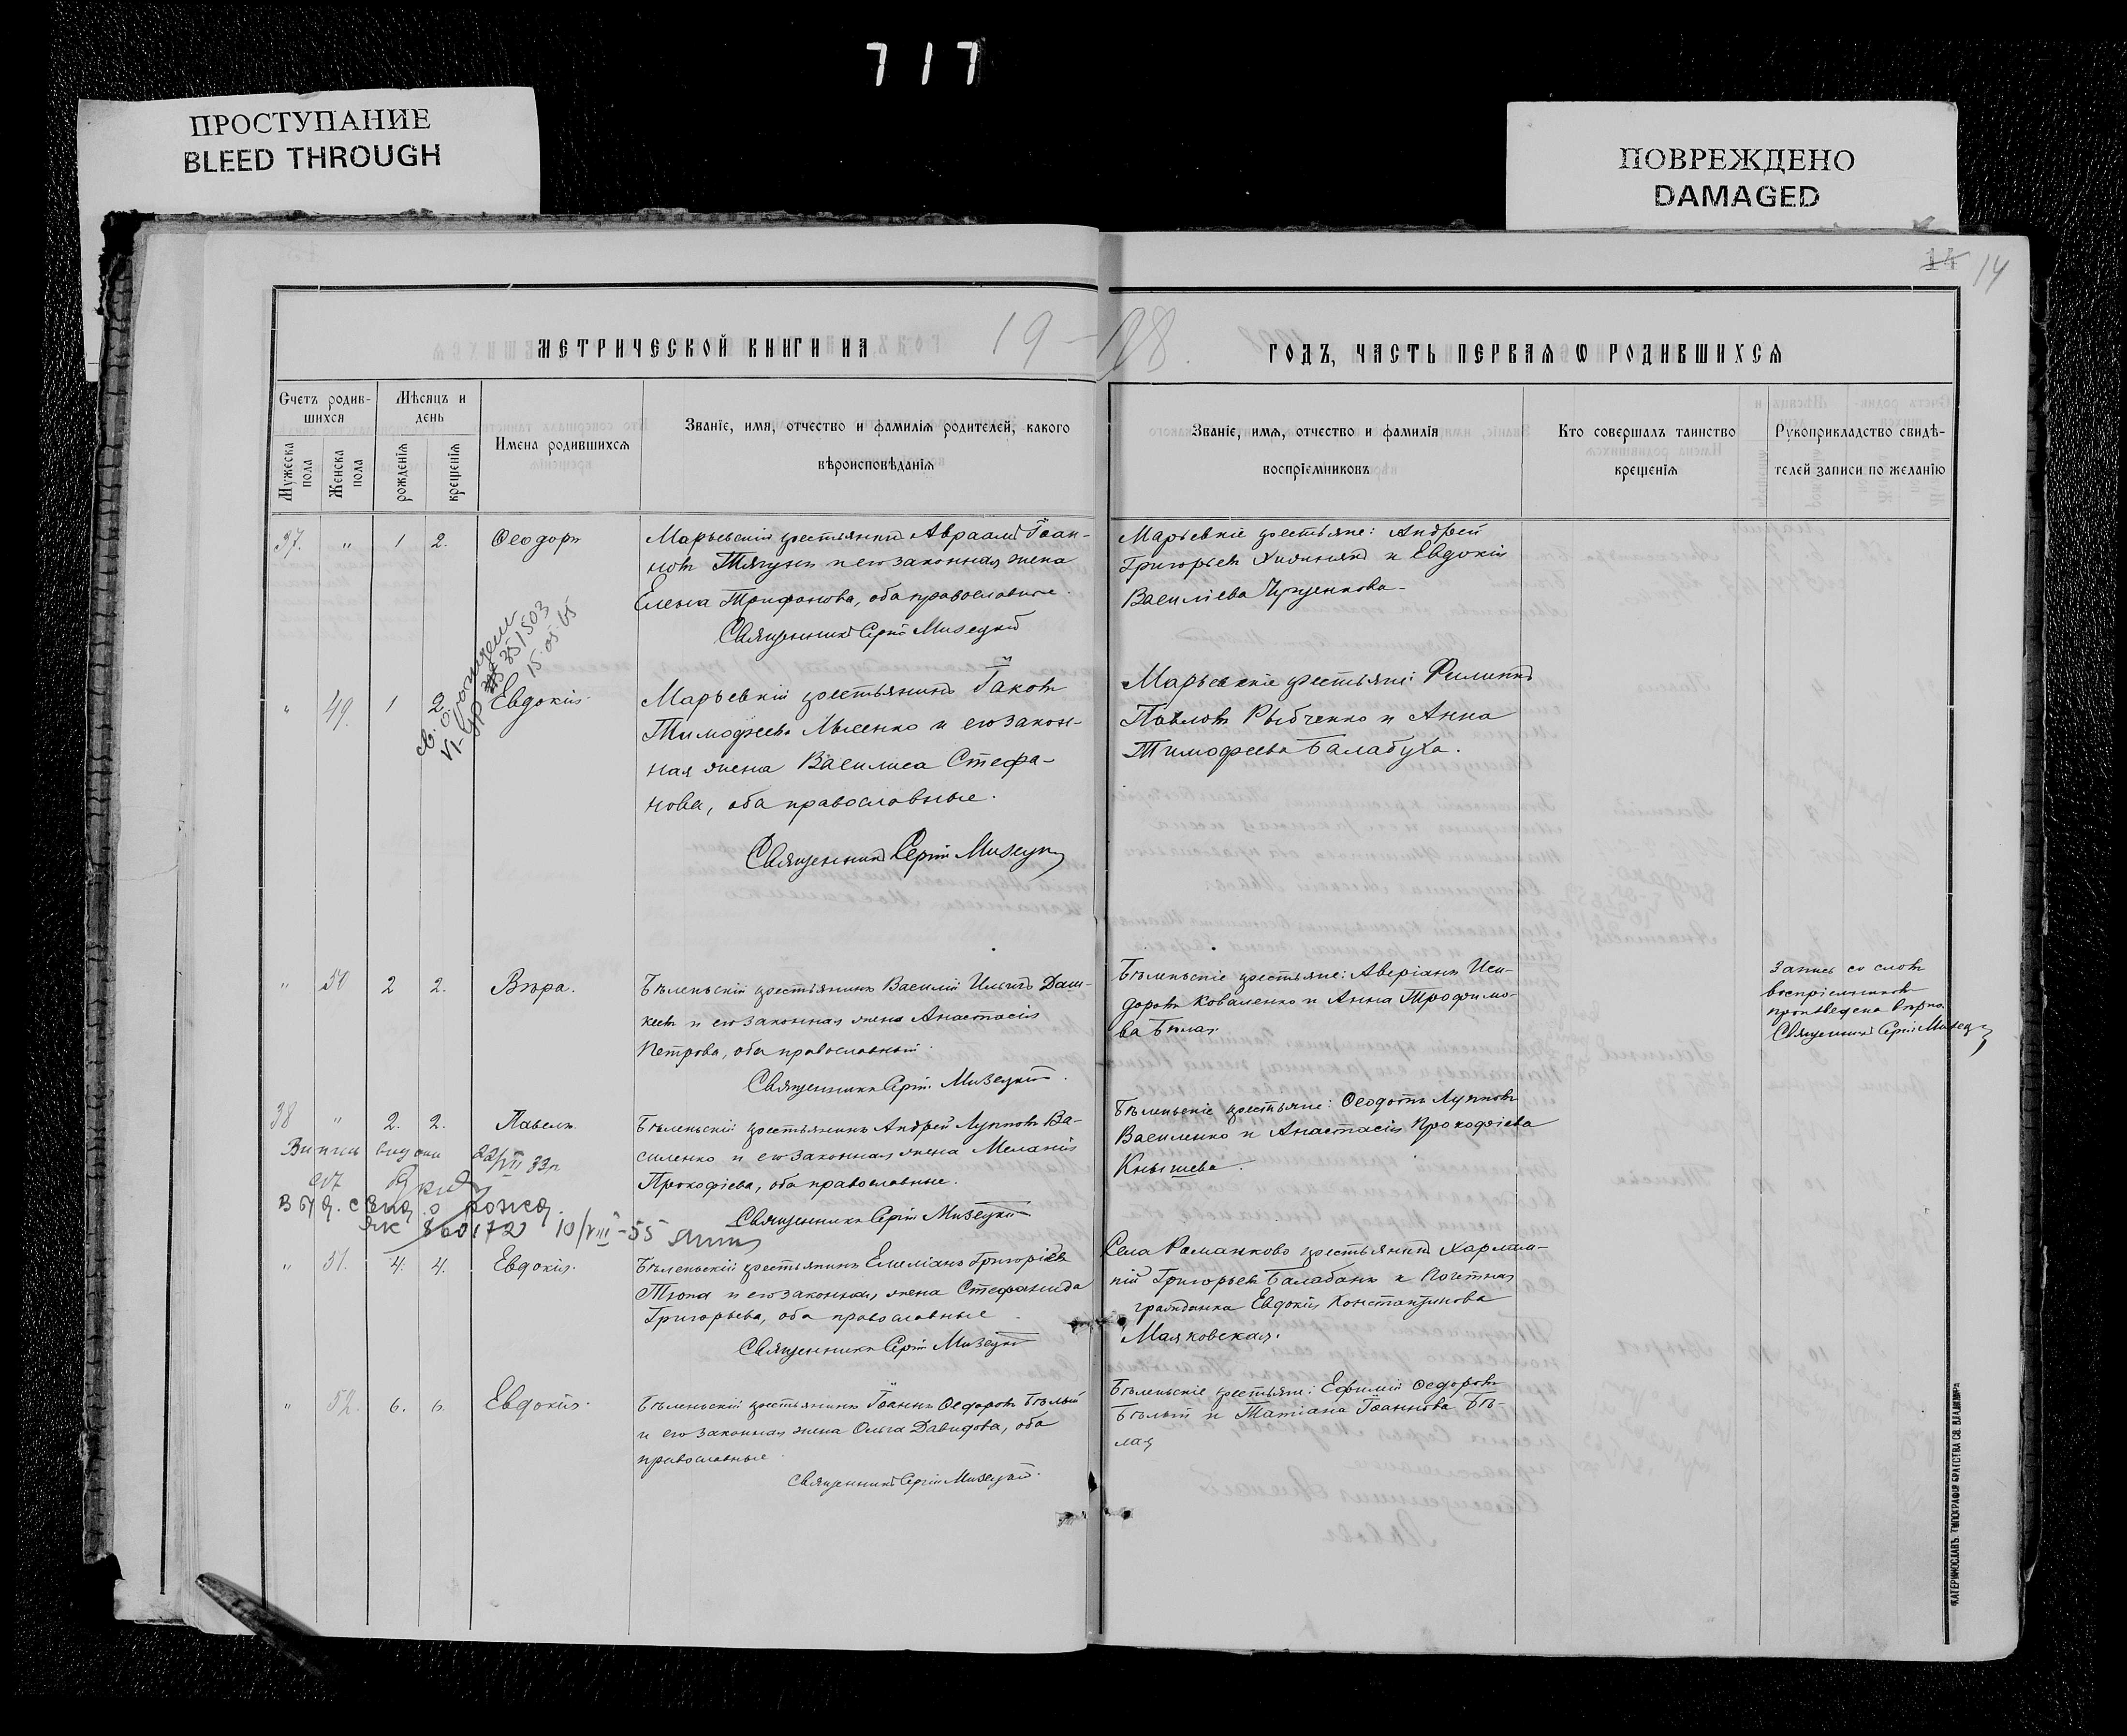 717
ПРОСТУПАНИЕ
BLEED THROUGH
ПОВРЕЖДЕНО
DAMAGED
14 14
МЕТРИЧЕСКОЙ КНИГИ НА 19
ГОДЪ, ЧАСТЬ ПЕРВАЯ Ѡ РОДИВШИХСЯ
Счетъ родив-
шихся
Мужеска пола
Женска пола
Мѣсяцъ и
день
рожденія
крещенія
Имена родившихся
Званіе, имя, отчество и фамилія родителей, какого
вѣроисповѣданія
Званіе, имя, отчество и фамилія
воспріемниковъ
Кто совершалъ таинство
крещенія
Рукоприкладство свидѣ-
телей записи по желанію
37. " 1 2. Ѳеодоръ
Марьевскій крестьянинъ Авраамъ Іоан-
новъ Тягунъ и его законная жена
Елена Трифонова, оба православные.
Священникъ Сергій Мизецкій
Марьевкіе крестьяне: Андрей
Григорьевъ и Евдокія
Василіева
351503
15.05.65
" 49. 1 2. Евдокія
Марьевкій крестьянинъ Іаковъ
Тимофеевъ Лысенко и его закон-
ная жена Василиса Стефа-
нова, оба православные.
Священникъ Сергій Мизецкій
Марьевскіе крестьяне: Филиппъ
Павловъ Рыбченко и Анна
Тимофеева Балабуха.
" 50 2 2. Вѣра.
Бѣленьскій крестьянинъ Василій Ильичъ Даш-
кевъ и его законная жена Анастасія
Петрова, оба православный.
Священникъ Сергій Мизецкій.
Бѣленьскіе крестьяне: Аверіанъ Иси-
доровъ Коваленко и Анна Трофимо-
ва Бѣлая.
Запись со словъ
воспріемниковъ
произведена вѣрно.
Священникъ Сергій Мизецкій
38 " 2. 2. Павелъ.
Бѣленьскій крестьянинъ Андрей Лупповъ Ва-
силенко и его законная жена Меланія
Прокофіева, оба православные.
Священникъ Сергій Мизецкій
Бѣленьскіе крестьяне: Ѳеодотъ Лупповъ
Василенко и Анастасія Прокофіева
Кнышева.
22/VII 33р
Выд. свид. о рожд.
860172 10/VIII-55
" 51. 4. 4. Евдокія.
Бѣленьскій крестьянинъ Емеліанъ Григоріевъ
Тюпа и его законная жена Стефанида
Григорьева, оба православные
Священникъ Сергій Мизецкій
Села Романково крестьянинъ Харлам-
пій Григорьевъ Балабанъ и Почетная
гражданка Евдокія Константинова
Маяковская.
" 52. 6. 6. Евдокія.
Бѣленьскій крестьянинъ Іоаннъ Ѳедоровъ Бѣлый
и его законная жена Ольга Давидова, оба
православные
Священникъ Сергій Мизецкій.
Бѣленьскіе крестьяне: Ефимій Ѳедоровъ
Бѣлый и Татіана Іоаннова Бѣ-
лая
КАТЕРИНОСЛАВЪ. ТИПОГРАФІЯ БРАТСТВА СВ. ВЛАДИМІРА